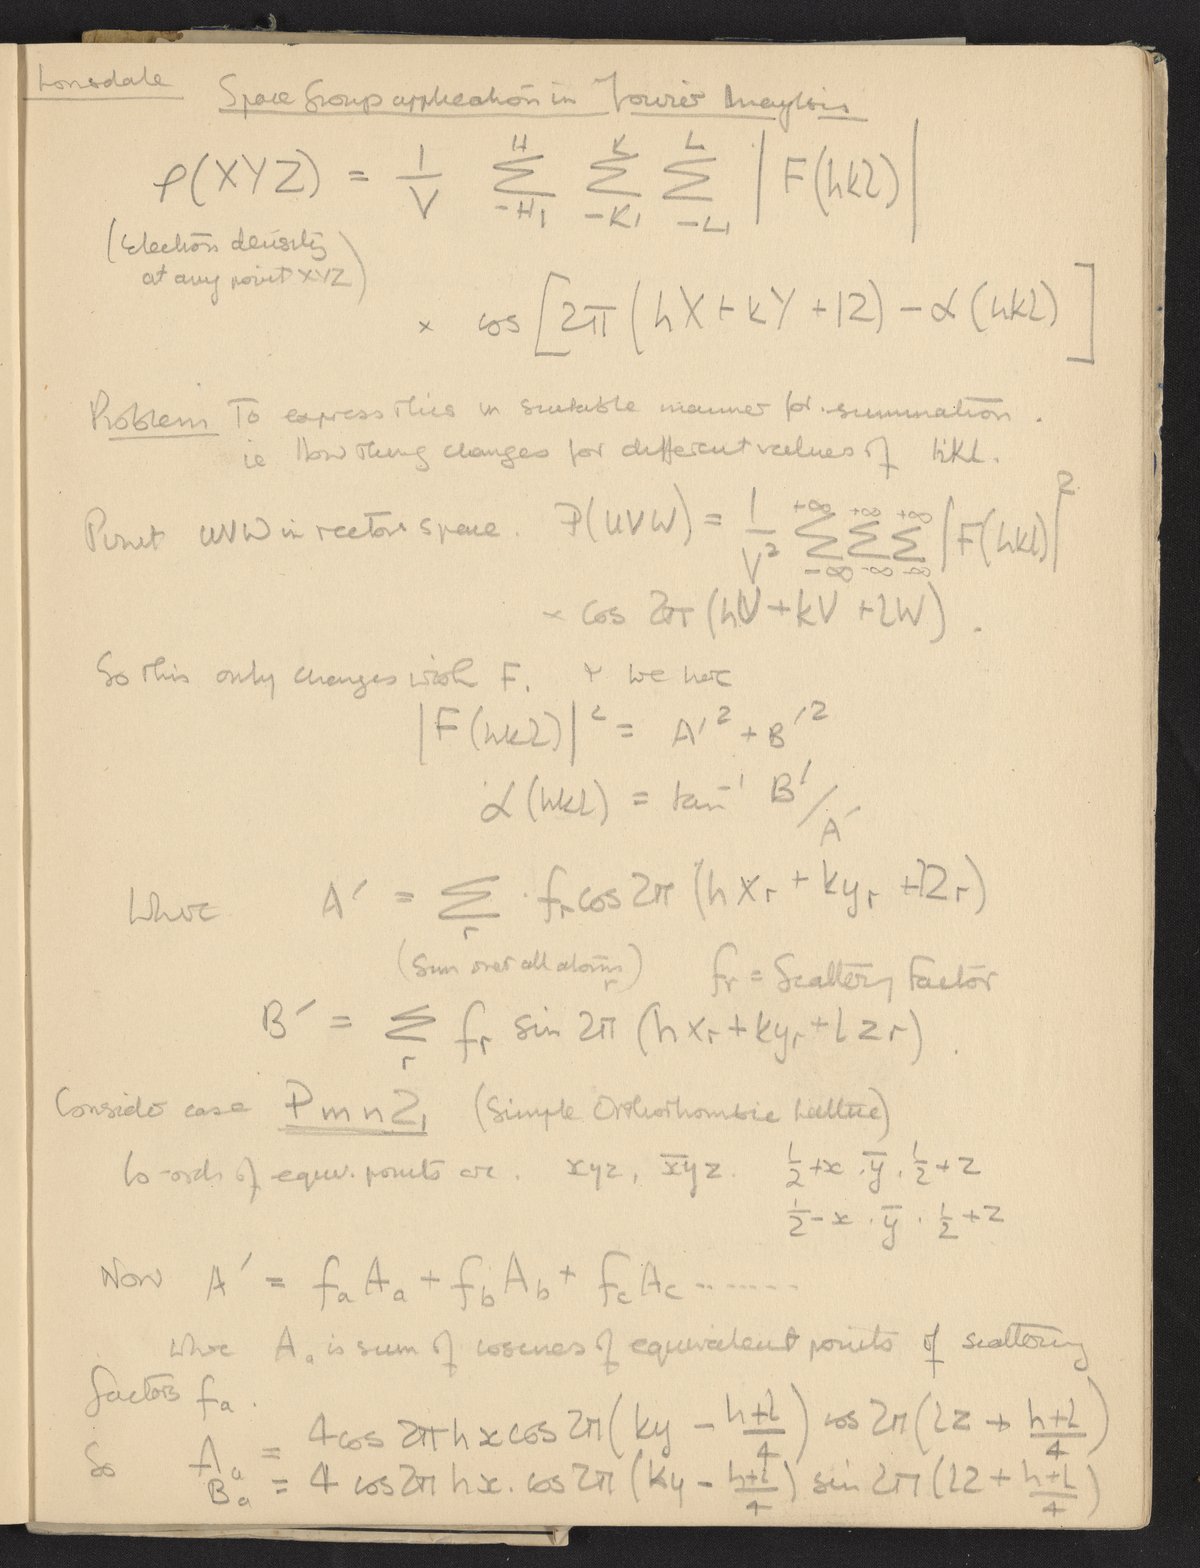 Lonsdale
Space Group application in Fourier Analysis
ρ(XYZ) = 1/V Σ_{-H₁}^{H} Σ_{-K₁}^{K} Σ_{-L₁}^{L} |F(hkl)|
(Electron density
at any point XYZ)
× cos [2π (hX + kY + lZ) - α(hkl)]
Problem To express this in suitable manner for summation.
ie How thing changes for different values of hkl.
Point UVW in vector space. P(UVW) = 1/V² Σ_{-∞}^{+∞} Σ_{-∞}^{+∞} Σ_{-∞}^{+∞} |F(hkl)|²
× cos 2π (hU + kV + lW).
So this only changes with F. & we have
|F(hkl)|² = A′² + B′²
α(hkl) = tan⁻¹ B′/A′
Where A′ = Σ_r · f_r cos 2π (hx_r + ky_r + lz_r)
(Sum over all atoms r) f_r = Scattering Factor
B′ = Σ_r f_r sin 2π (hx_r + ky_r + lz_r).
Consider case Pmn2₁ (Simple Orthorhombic Lattice)
Co-ords of equiv. points are. xyz, x̄yz. ½+x . ȳ . ½+z
½-x . ȳ . ½+z
Now A′ = f_a A_a + f_b A_b + f_c A_c -------
where A_a is sum of cosines of equivalent points of scattering
factors f_a.
So A_a = 4 cos 2π hx cos 2π (ky - (h+l)/4) cos 2π (lz + (h+l)/4)
B_a = 4 cos 2π hx . cos 2π (ky - (h+l)/4) sin 2π (lz + (h+l)/4)